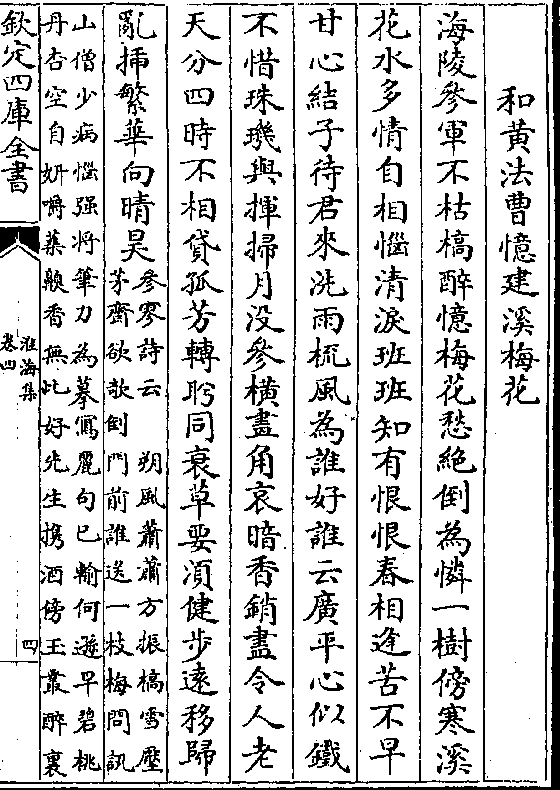 和黃法曹憶建溪梅花
海陵參軍不枯槁醉憶梅花愁絶倒為憐一樹傍寒溪
花水多情自相惱清淚班班知有恨恨春相逢苦不早
甘心結子待君來洗雨梳風為誰好誰云廣平心似鐵
不惜珠璣與揮掃月没參橫畫角哀暗香銷盡令人老
天分四時不相貸孤芳轉盻同衰草要須健步逺移歸
亂插繁華向晴昊
參寥詩云 朔風蕭蕭方振槁雪壓
茅齋欲欹倒門前誰送一枝梅問訊
山僧少病惱强將筆力為摹冩麗句已輸何遜早碧桃
丹杏空自妍嚼蘂齅香無此好先生携酒傍玉叢醉裏
欽定四庫全書
淮海集
卷四
四